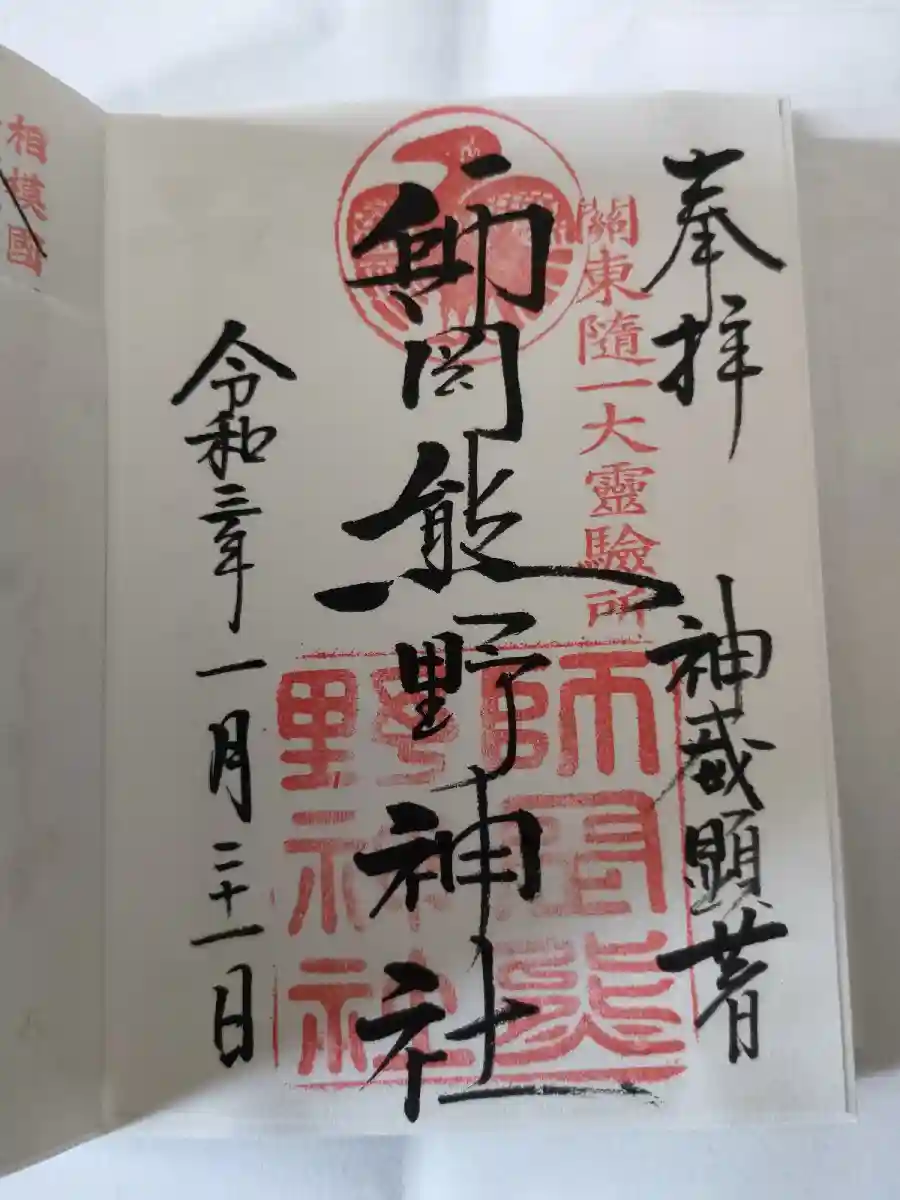 奉拝
神威顕著
關東隨一大靈驗所
師岡熊野神社
師岡熊
野神社
令和三年一月二十一日
相模國